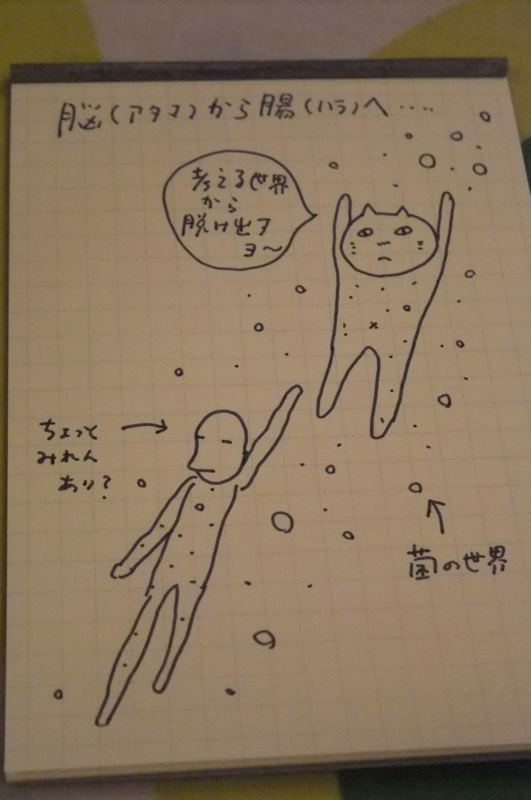 脳(アタマ)から腸(ハラ)へ....
考える世界
から
脱け出ヲ
ヨ〜
ちょっと
みれん
あり?
菌の世界